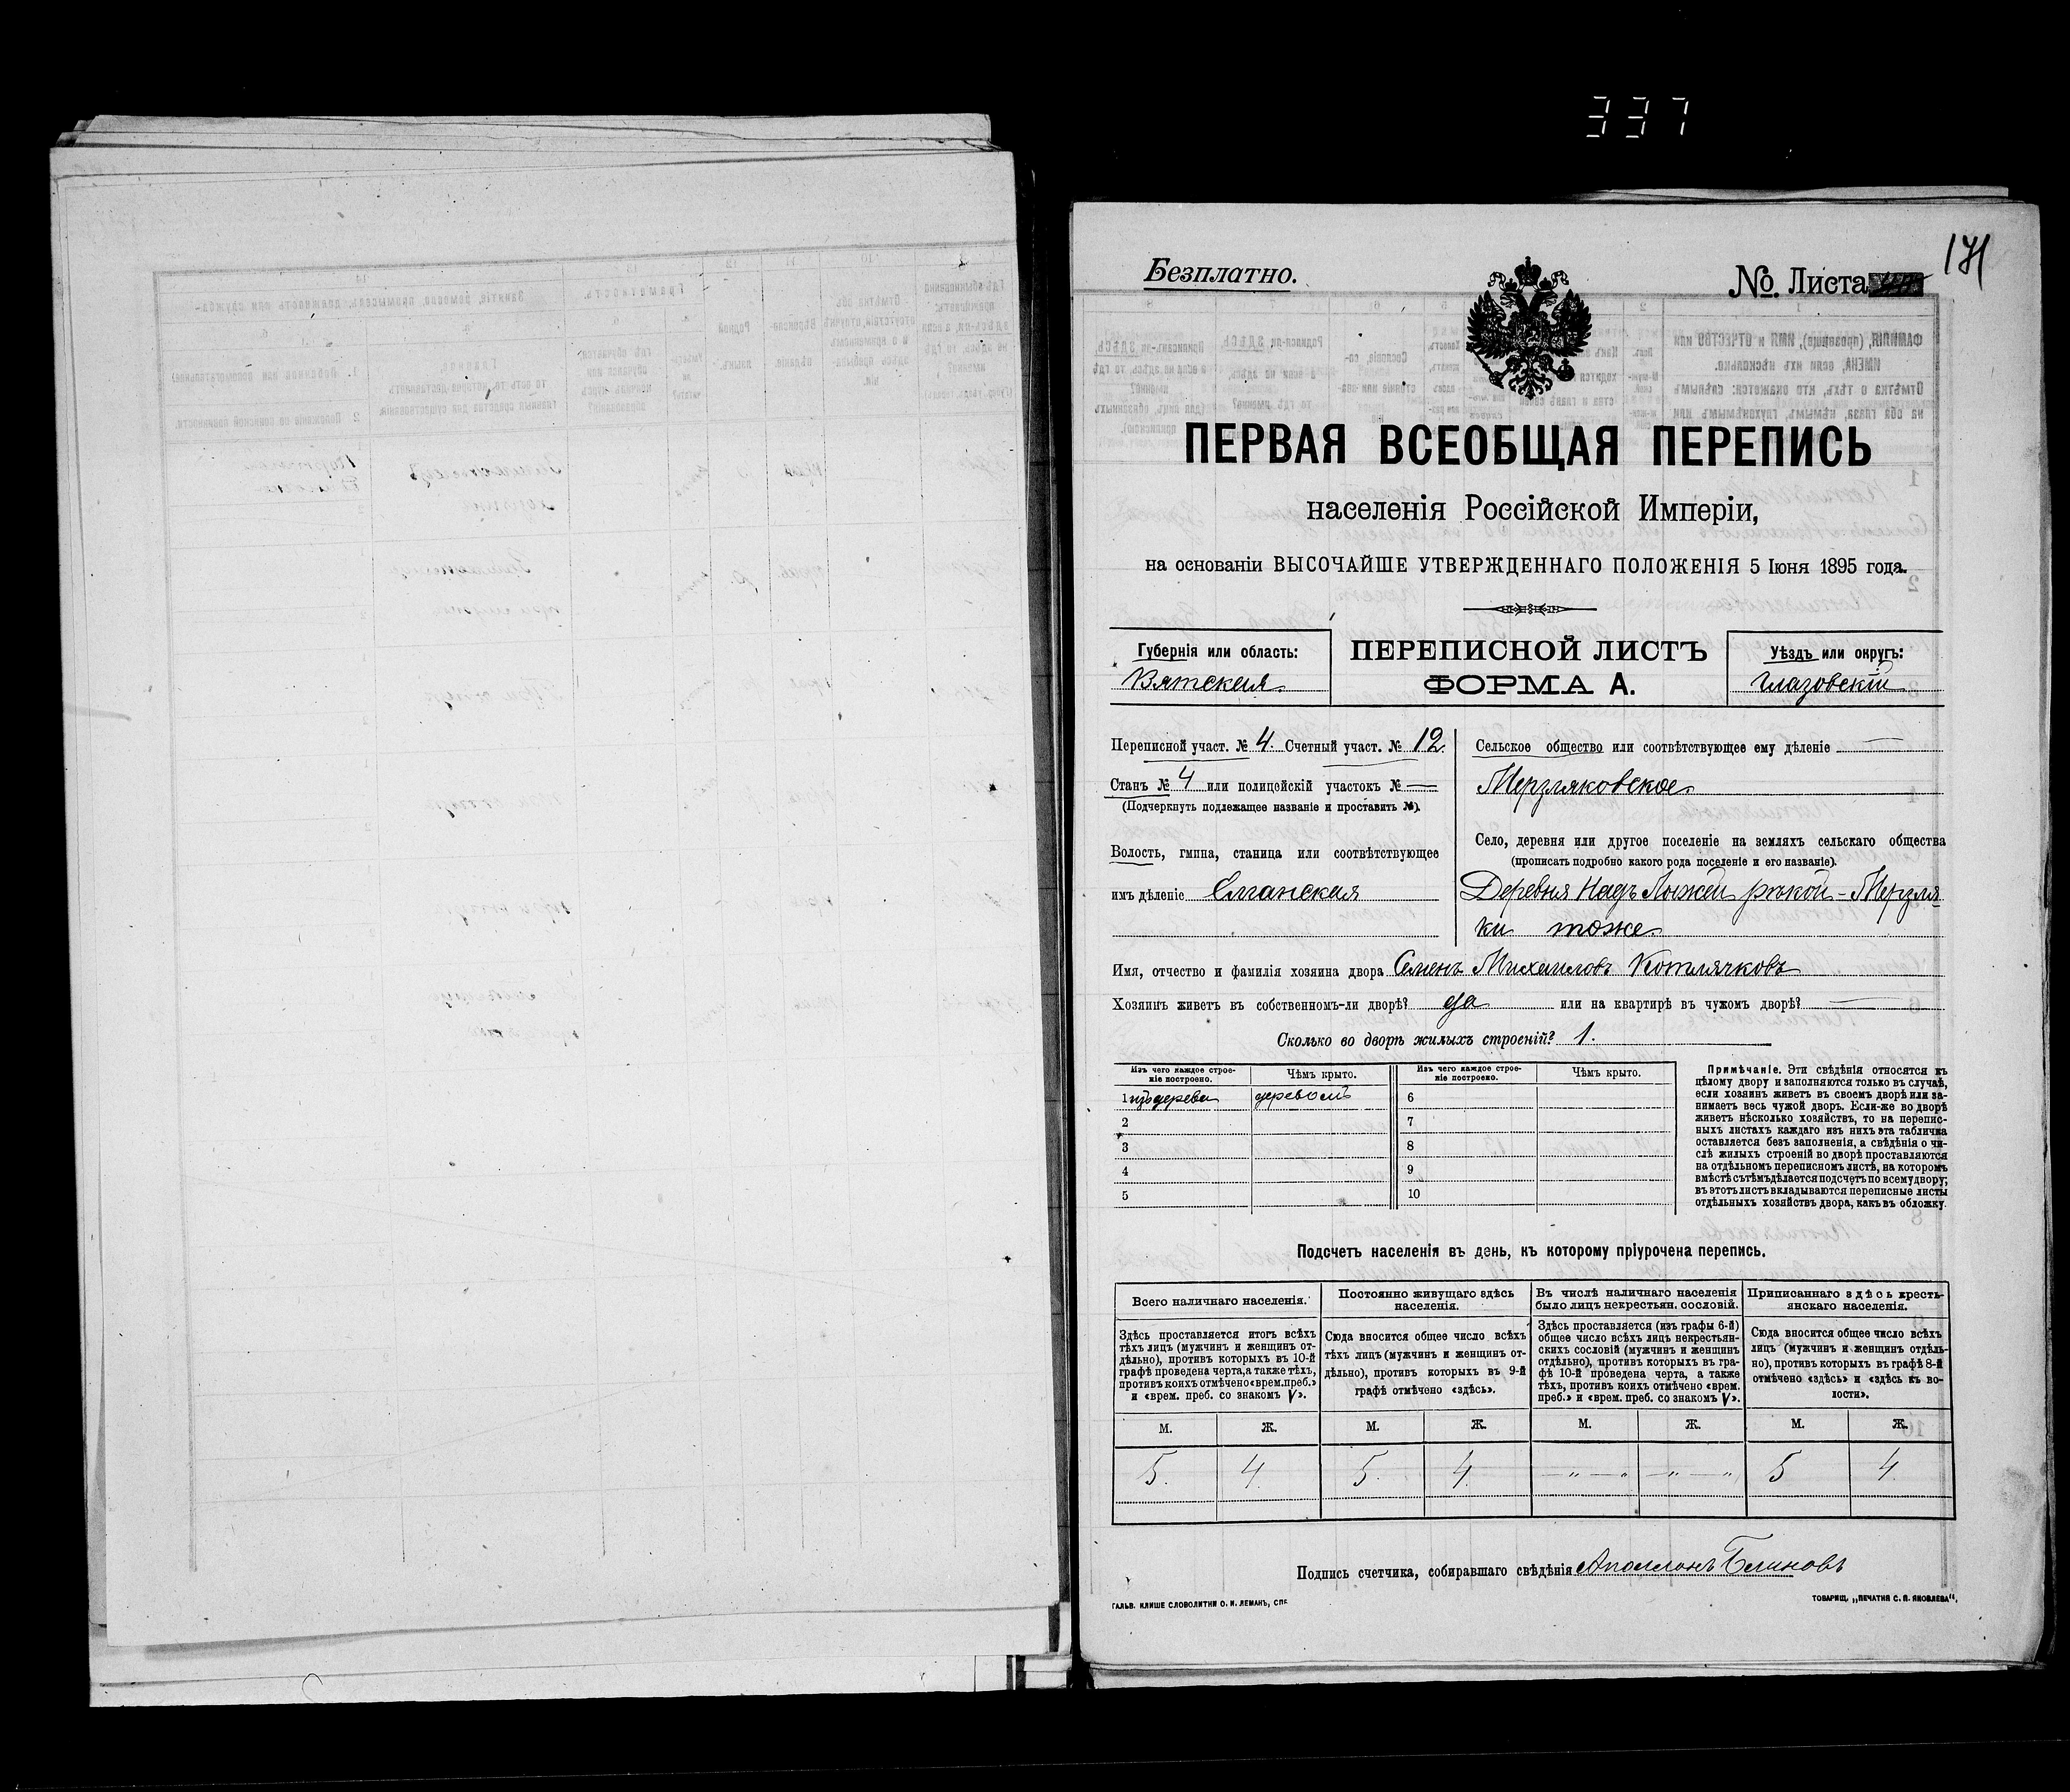 337
171
Безплатно.
№. Листа
ПЕРВАЯ ВСЕОБЩАЯ ПЕРЕПИСЬ
населенія Россійской Имперіи,
на основаніи ВЫСОЧАЙШЕ УТВЕРЖДЕННАГО ПОЛОЖЕНІЯ 5 Іюня 1895 года.
Губернія или область:
Вятская.
ПЕРЕПИСНОЙ ЛИСТЪ
ФОРМА А.
Уѣздъ или округъ:
Глазовскій
Переписной участ. № 4. Счетный участ. № 12.
Станъ № 4 или полицейскій участокъ № —
(Подчеркнуть подлежащее названіе и проставить №).
Волость, гмина, станица или соотвѣтствующее
имъ дѣленіе Елганская
Сельское общество или соотвѣтствующее ему дѣленіе —
Мерзляковское.
Село, деревня или другое поселеніе на земляхъ сельскаго общества
(прописать подробно какого рода поселеніе и его названіе).
Деревня Надъ Лыжей рѣкой - Мерзля-
ки тоже.
Имя, отчество и фамилія хозяина двора Семенъ Михаиловъ Котлячковъ
Хозяинъ живетъ въ собственномъ-ли дворѣ? да или на квартирѣ въ чужомъ дворѣ? —
Сколько во дворѣ жилыхъ строеній? 1.
Изъ чего каждое строе-
ніе построено.
Чѣмъ крыто.
Изъ чего каждое строе-
ніе построено.
Чѣмъ крыто.
1 изъ дерева деревомъ 6
2 7
3 8
4 9
5 10
Примѣчаніе. Эти свѣдѣнія относятся къ
цѣлому двору и заполняются только въ случаѣ,
если хозяинъ живетъ въ своемъ дворѣ или за-
нимаетъ весь чужой дворъ. Если-же во дворѣ
живетъ нѣсколько хозяйствъ, то на перепис-
ныхъ листахъ каждаго изъ нихъ эта табличка
оставляется безъ заполненія, а свѣдѣнія о чи-
слѣ жилыхъ строеній во дворѣ проставляются
на отдѣльномъ переписномъ листѣ, на которомъ
вмѣстѣ съ тѣмъ дѣлается подсчетъ по всему двору;
въ этотъ листъ вкладываются переписные листы
отдѣльныхъ хозяйствъ двора, какъ въ обложку.
Подсчетъ населенія въ день, къ которому пріурочена перепись.
Всего наличнаго населенія.
Здѣсь проставляется итогъ всѣхъ
тѣхъ лицъ (мужчинъ и женщинъ от-
дѣльно), противъ которыхъ въ 10-й
графѣ проведена черта, а также тѣхъ,
противъ коихъ отмѣчено «врем. преб.»
и «врем. преб. со знакомъ V».
Постоянно живущаго здѣсь
населенія.
Сюда вносится общее число всѣхъ
тѣхъ лицъ (мужчинъ и женщинъ от-
дѣльно), противъ которыхъ въ 9-й
графѣ отмѣчено «здѣсь».
Въ числѣ наличнаго населенія
было лицъ некрестьян. сословій.
Здѣсь проставляется (изъ графы 6-й)
общее число всѣхъ лицъ некрестьян-
скихъ сословій (мужчинъ и женщинъ
отдѣльно), противъ которыхъ въ гра-
фѣ 10-й проведена черта, а также
тѣхъ, противъ коихъ отмѣчено «врем.
преб.» и «врем. преб. со знакомъ V».
Приписаннаго здѣсь кресть-
янскаго населенія.
Сюда вносится общее число всѣхъ
лицъ (мужчинъ и женщинъ отдѣль-
но), противъ которыхъ въ графѣ 8-й
отмѣчено «здѣсь» и «здѣсь въ во-
лости».
М. Ж. М. Ж. М. Ж. М. Ж.
5. 4. 5. 4. — „ — „ — „ — „ 5 4.
Подпись счетчика, собиравшаго свѣдѣнія Аполлонъ Блиновъ
ГАЛЬВ. КЛИШЕ СЛОВОЛИТНИ О. И. ЛЕМАНЪ, СПБ.
ТОВАРИЩ. „ПЕЧАТНЯ С. П. ЯКОВЛЕВА“.